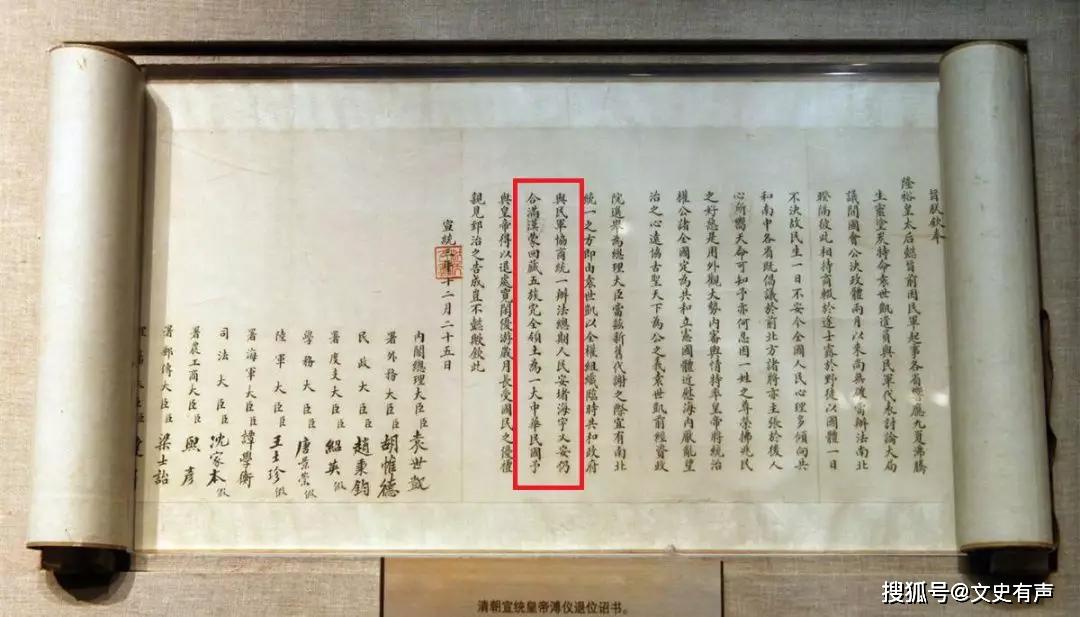 旨朕欽奉
隆裕皇太后懿旨前因民軍起事各省響應九夏沸騰
生靈塗炭特命袁世凱遣員與民軍代表討論大局
議開國會公決政體兩月以來尚無確當辦法南北
暌隔彼此相持商輟於途士露於野徒以國體一日
不決故民生一日不安今全國人民心理多傾向共
和南中各省既倡議於前北方諸將亦主張於後人
心所嚮天命可知予亦何忍因一姓之尊榮拂兆民
之好惡是用外觀大勢內審輿情特率皇帝將統治
權公諸全國定為共和立憲國體近慰海內厭亂望
治之心遠協古聖天下為公之義袁世凱前經資政
院選舉為總理大臣當茲新舊代謝之際宜有南北
統一之方即由袁世凱以全權組織臨時共和政府
與民軍協商統一辦法總期人民安堵海宇乂安仍
合滿漢蒙回藏五族完全領土為一大中華民國予
與皇帝得以退處寬閒優游歲月長受國民之優禮
親見郅治之告成豈不懿歟欽此
宣統三年十二月二十五日
內閣總理大臣臣袁世凱
署外務大臣臣胡惟德
民政大臣臣趙秉鈞
署度支大臣臣紹英假
學務大臣臣唐景崇假
陸軍大臣臣王士珍假
署海軍大臣臣譚學衡
司法大臣臣沈家本假
署農工商大臣臣熙彥
署郵傳大臣臣梁士詒
清朝宣统皇帝溥仪退位诏书。
搜狐号@文史有声